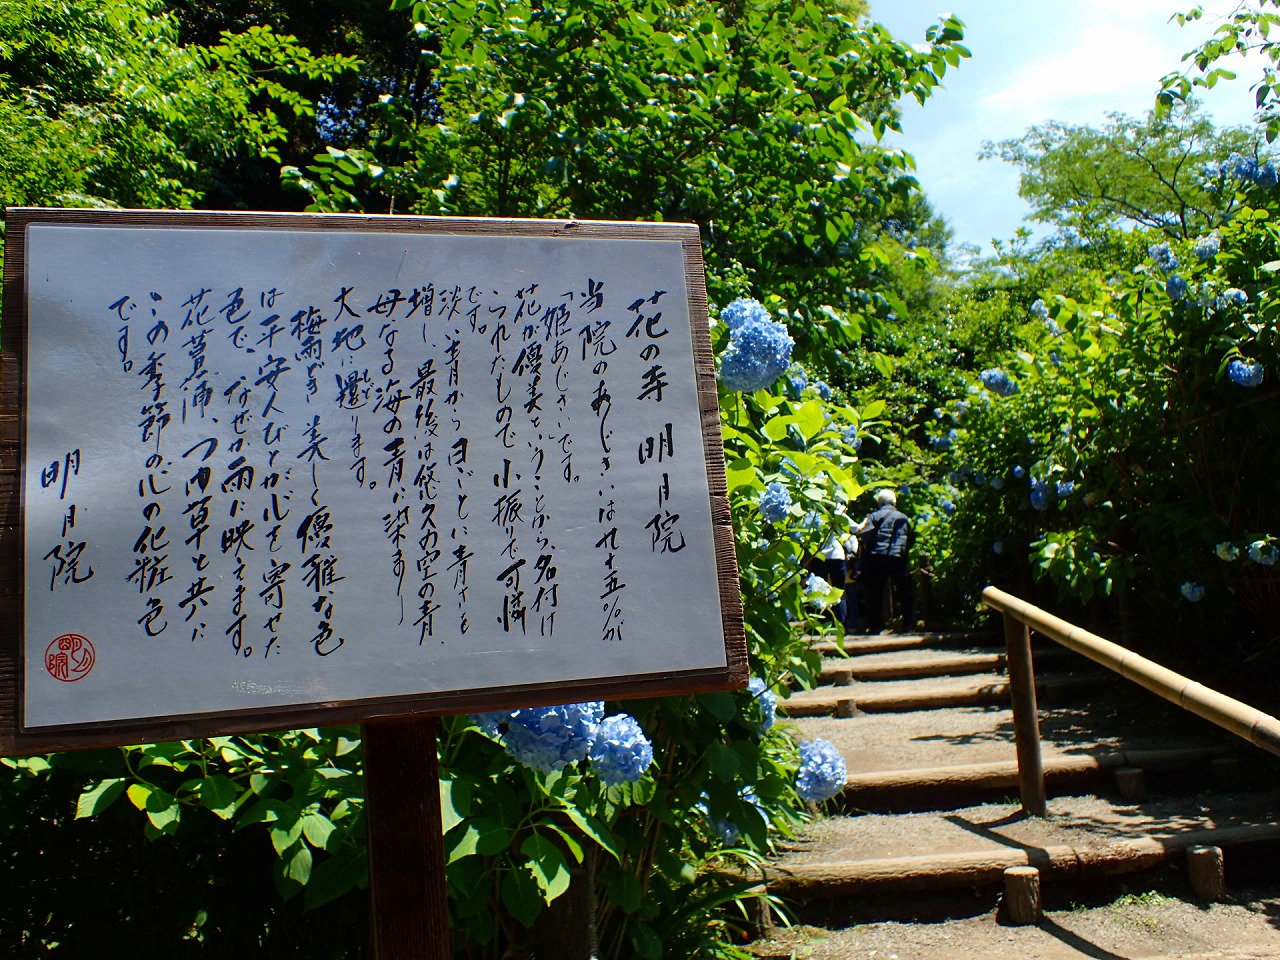 花の寺 明月院
当院のあじさいは九十五%が
「姫あじさい」です。
花が優美ということから名付け
られたもので小振りで可憐
です。
淡い青から日ごとに青さを
増し、最後は悠久の空の青、
母なる海の青に染まり
大地に還ります。
梅雨どき美しく優雅な色
は平安人びとが心を寄せた
色で、なぜか雨に映えます。
花菖蒲、つゆ草と共に
この季節の心の化粧色
です。
明月院